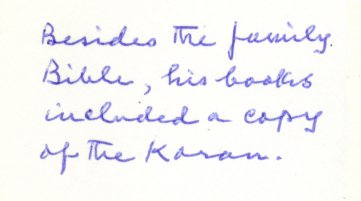 Besides the family
Bible, his books
included a copy
of the Koran.